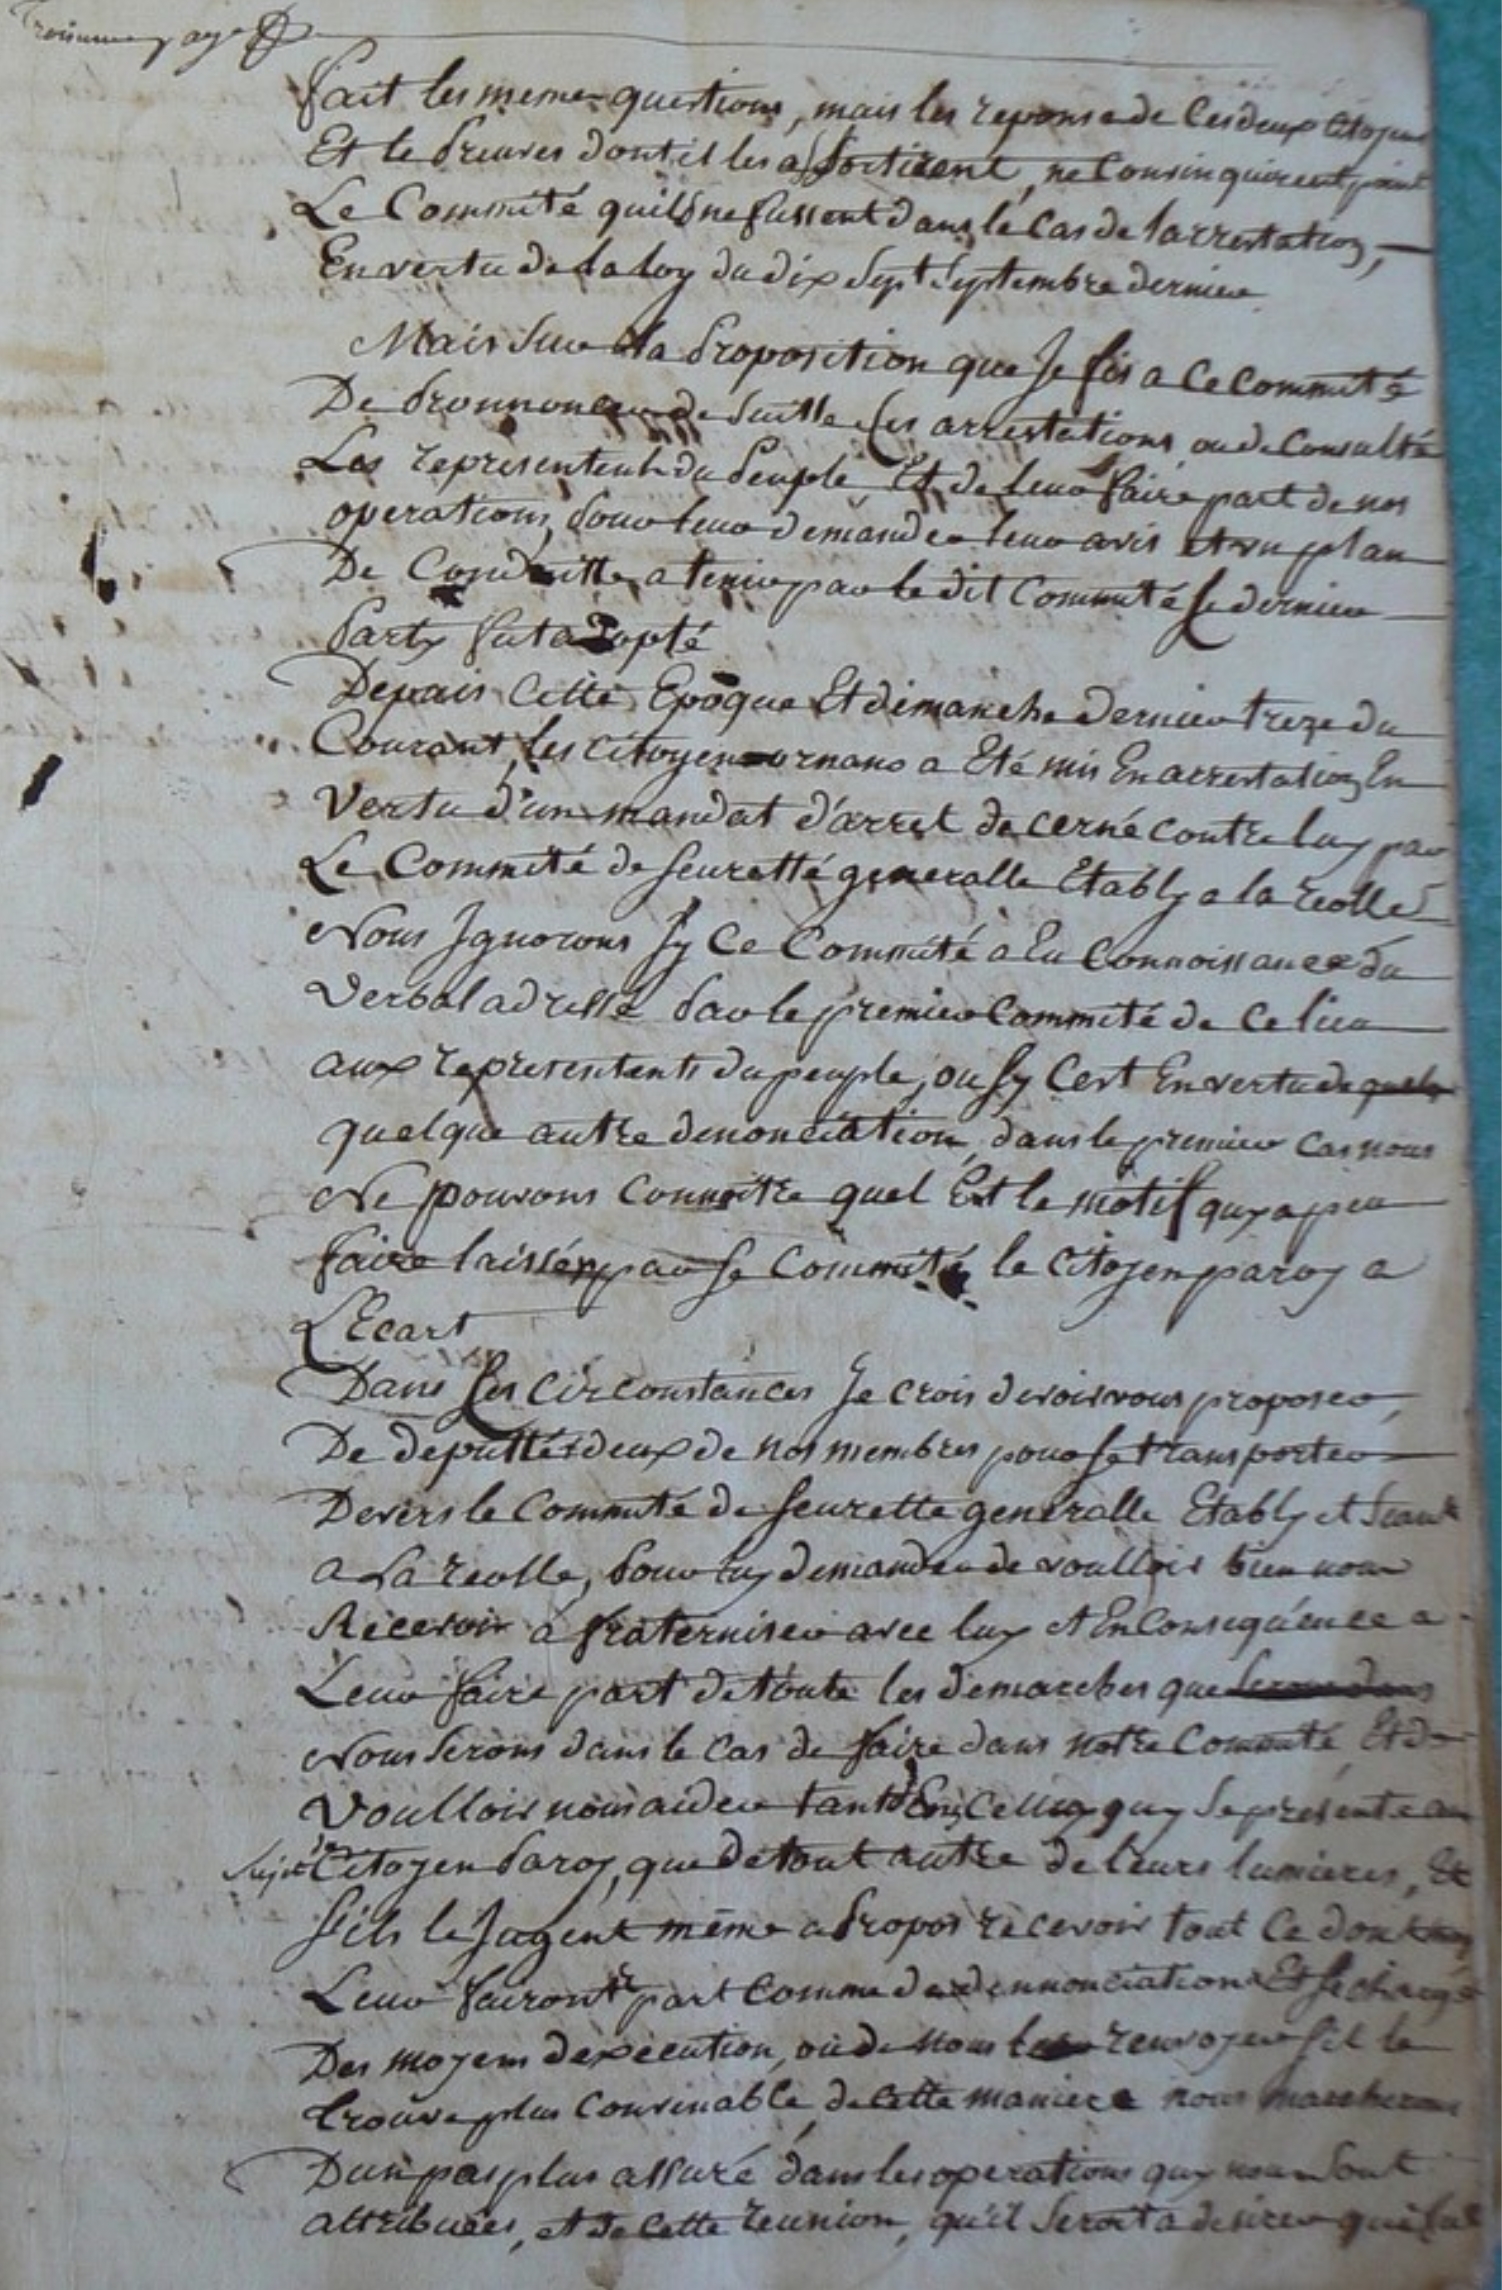 Troisieme page
fait les meme questions, mais les reponse de Ces deux Citoyens
Et le preuves dont il les assortirent, ne Convinquirent point
Le Committé quils ne fussent dans le Cas de larrestation,
En vertu de la loy du dix Sept Septembre dernier
Mais Sur la proposition que Je fis a Ce Committé
De prononcer de Suitte les arrestations ou de Consulté
Les representents du peuple Et de leur faire part de nos
operations, pour leur demander leur avis et un plan
De Conduitte a tenir par le dit Committé le dernier
party fut adopté
Depuis Cette Epoque Et dimanche dernier treze du
Courant, les Citoyen ornano a Eté mis En arrestation En
Vertu d'un mandat d'arret decerné contre luy par
Le Committé de Seuretté generalle Etably a la reolle
Nous Ignorons Sy Ce Committé a Eu Connoissance du
Verbal adressé par le premier Committé de Ce lieu
aux representents du peuple, ou Sy Cest En vertu de
quelque autre denonciation, dans le premier Cas nous
Ne pouvons Connoitre quel Est le motif quy a peu
faire laissér par Se Committé le Citoyen paroy a
LEcart
Dans les Circonstances Je crois devoir vous proposer,
De deputtér deux de nos membres pour Se transporter
Devers le Committé de Seurette generalle Etably et Seant
a La reolle, pour luy demander de voulloir bien nous
Recevoir á fraterniser avec luy et En Conséquence a
Leur faire part de toute les demarches que
Nous Serons dans le Cas de faire dans notre Committé Et de
Voulloir nous aider tant En Celluy quy Se presente au
Sujet du Citoyen paroy, que de tout autre de leurs lumieres, Et
Sils le Jugent même a propos recevoir tout Ce dont
Leur fairont part Comme de dennonciations Et Se chargé
Des moyens dexecution, ou de Nous renvoyer Sil le
trouve plus Convenable, de Cette maniere nous marcherons
Dun pas plus assuré dans les operations quy nous Sont
attribuées, et de Cette reunion, qu'il Seroit a desirer que fut